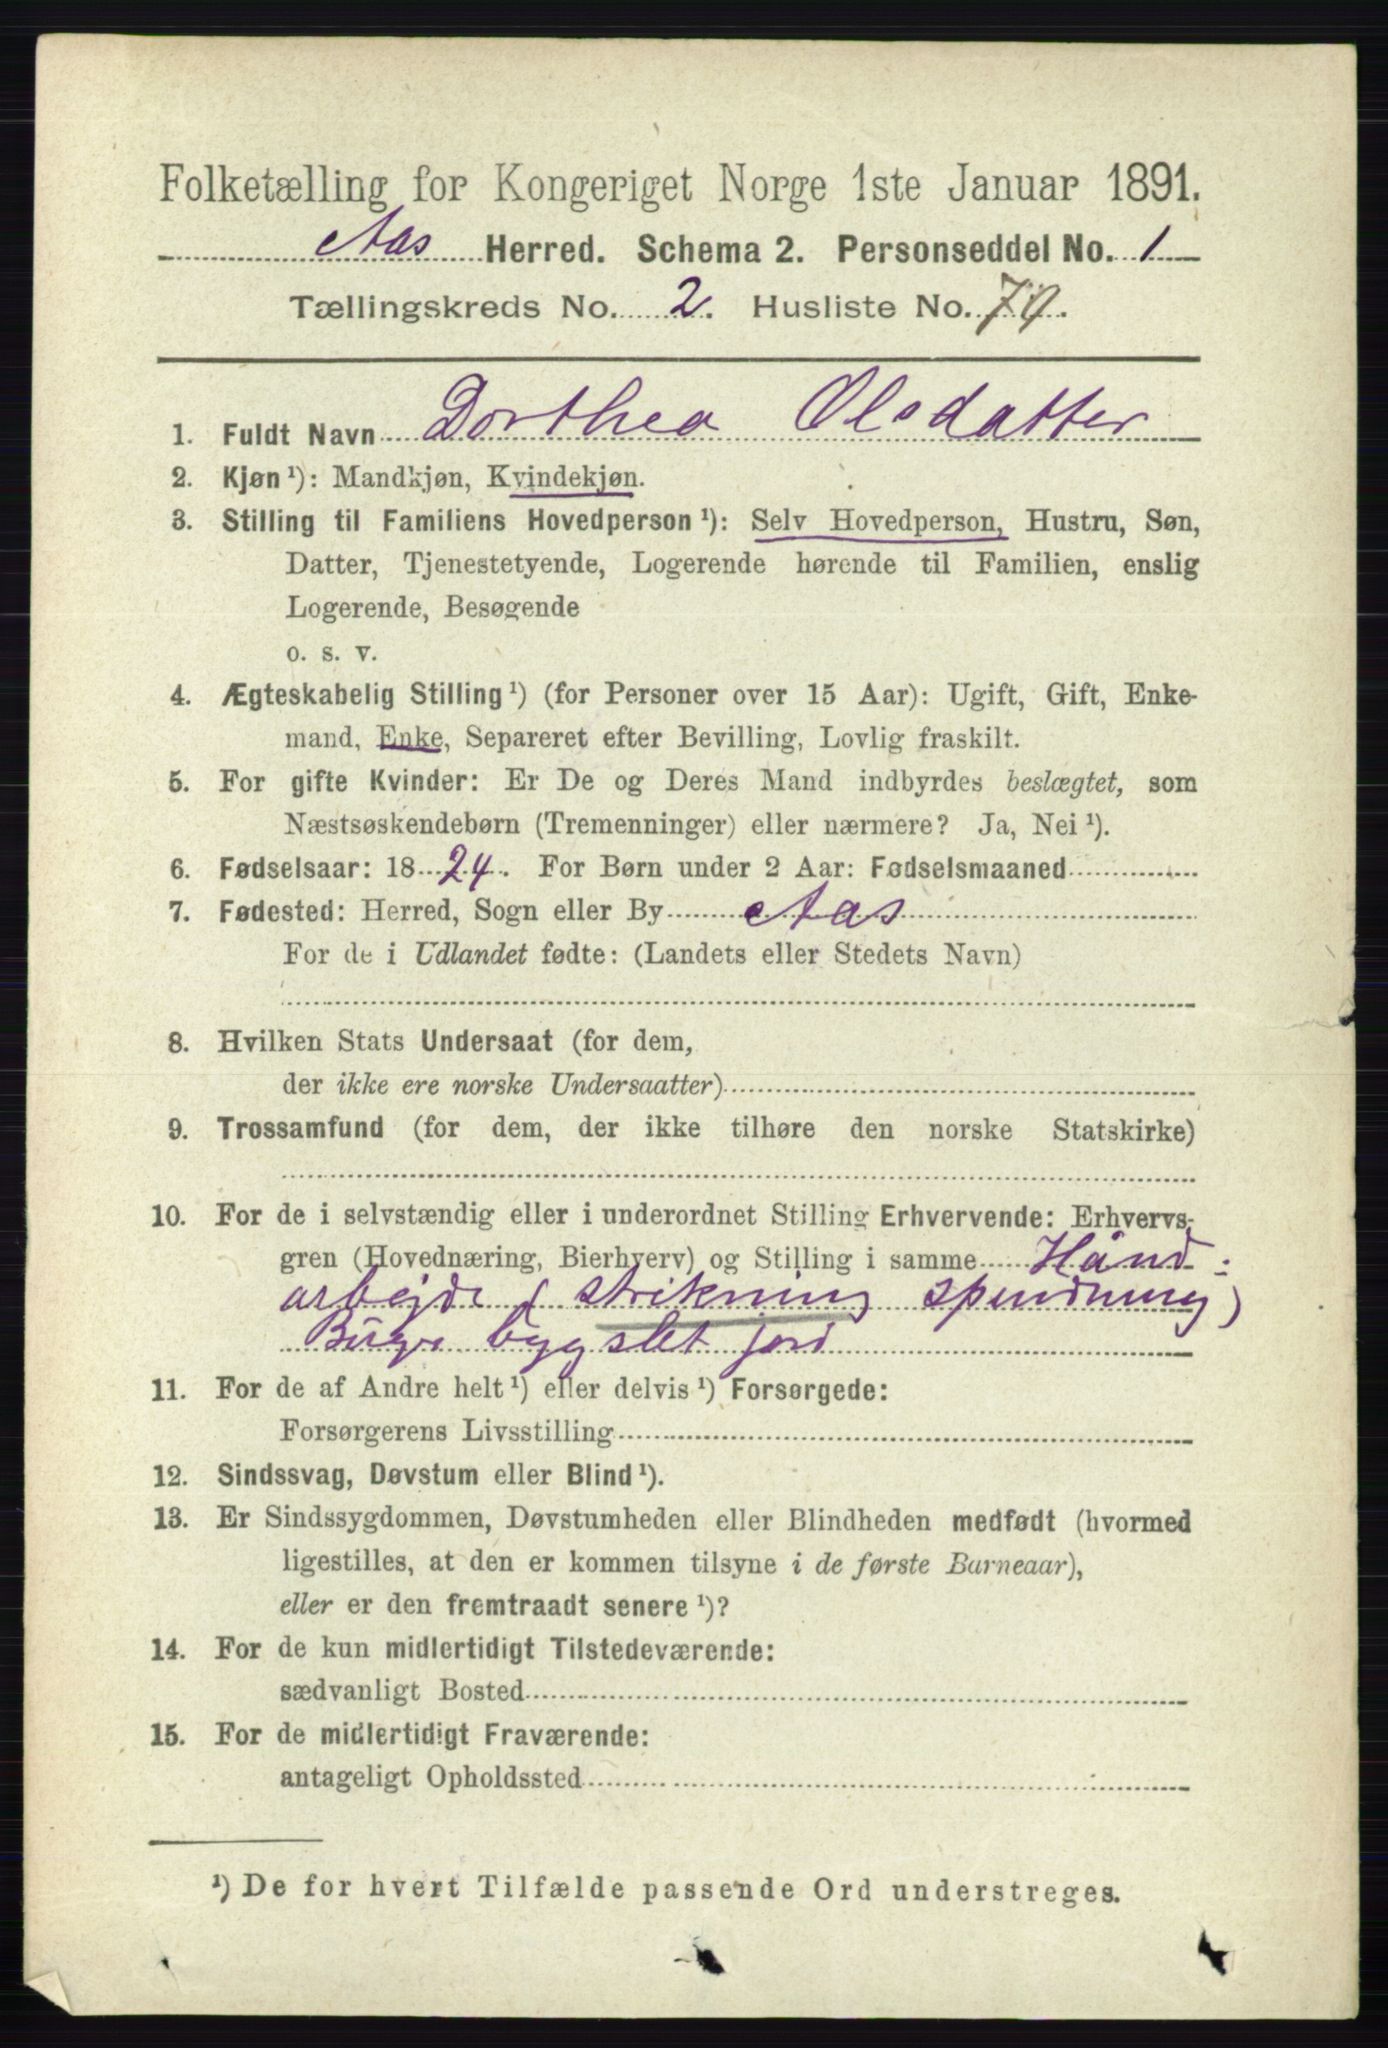 Folketælling for Kongeriget Norge 1ste Januar 1891.
Aas Herred. Schema 2. Personseddel No. 1
Tællingskreds No. 2. Husliste No. 70.
1. Fuldt Navn Dorthea Olsdatter
2. Kjøn ¹): Mandkjøn, Kvindekjøn.
3. Stilling til Familiens Hovedperson ¹): Selv Hovedperson, Hustru, Søn,
Datter, Tjenestetyende, Logerende hørende til Familien, enslig
Logerende, Besøgende
o. s. v.
4. Ægteskabelig Stilling ¹) (for Personer over 15 Aar): Ugift, Gift, Enke-
mand, Enke, Separeret efter Bevilling, Lovlig fraskilt.
5. For gifte Kvinder: Er De og Deres Mand indbyrdes beslægtet, som
Næstsøskendebørn (Tremenninger) eller nærmere? Ja, Nei ¹).
6. Fødselsaar: 1824. For Børn under 2 Aar: Fødselsmaaned
7. Fødested: Herred, Sogn eller By Aas
For de i Udlandet fødte: (Landets eller Stedets Navn)
8. Hvilken Stats Undersaat (for dem,
der ikke ere norske Undersaatter)
9. Trossamfund (for dem, der ikke tilhøre den norske Statskirke)
10. For de i selvstændig eller i underordnet Stilling Erhvervende: Erhvervs-
gren (Hovednæring, Bierhverv) og Stilling i samme Hånd-
arbejde (strikning spindning)
bygslet jord
11. For de af Andre helt ¹) eller delvis ¹) Forsørgede:
Forsørgerens Livsstilling
12. Sindssvag, Døvstum eller Blind ¹).
13. Er Sindssygdommen, Døvstumheden eller Blindheden medfødt (hvormed
ligestilles, at den er kommen tilsyne i de første Barneaar),
eller er den fremtraadt senere ¹)?
14. For de kun midlertidigt Tilstedeværende:
sædvanligt Bosted
15. For de midlertidigt Fraværende:
antageligt Opholdssted
¹) De for hvert Tilfælde passende Ord understreges.